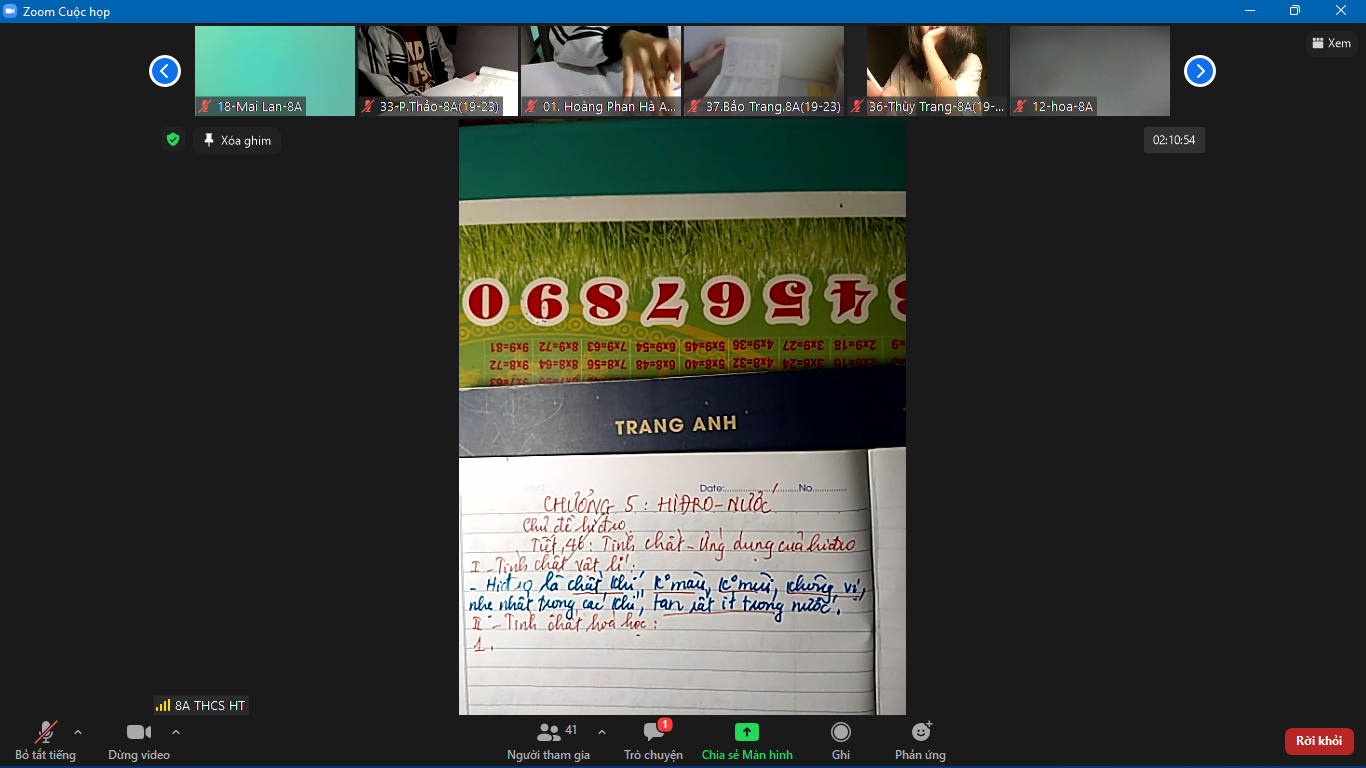 Zoom Cuộc họp
Xem
18-Mai Lan-8A
33-P.Thảo-8A(19-23)
01. Hoàng Phan Hà A...
37.Bảo Trang.8A(19-23)
36-Thùy Trang-8A(19-...
12-hoa-8A
Xóa ghim
02:10:54
4567890
9x9=81 8x9=72 7x9=63 6x9=54 5x9=45 4x9=36 3x9=27 2x9=18
9x8=72 8x8=64 7x8=56 6x8=48 5x8=40 4x8=32 3x8=24 2x8=16
TRANG ANH
Date:............../.........No.............
CHƯƠNG 5 : HIĐRO-NƯỚC
Chủ đề hiđro.
Tiết 46 : Tính chất - Ứng dụng của hiđro
I - Tính chất vật lí :
- Hiđro là chất khí, k° màu, k° mùi, không vị,
nhẹ nhất trong các khí, tan rất ít trong nước.
II - Tính chất hoá học :
1.
8A THCS HT
Bỏ tắt tiếng
Dừng video
41
Người tham gia
1
Trò chuyện
Chia sẻ Màn hình
Ghi
Phản ứng
Rời khỏi